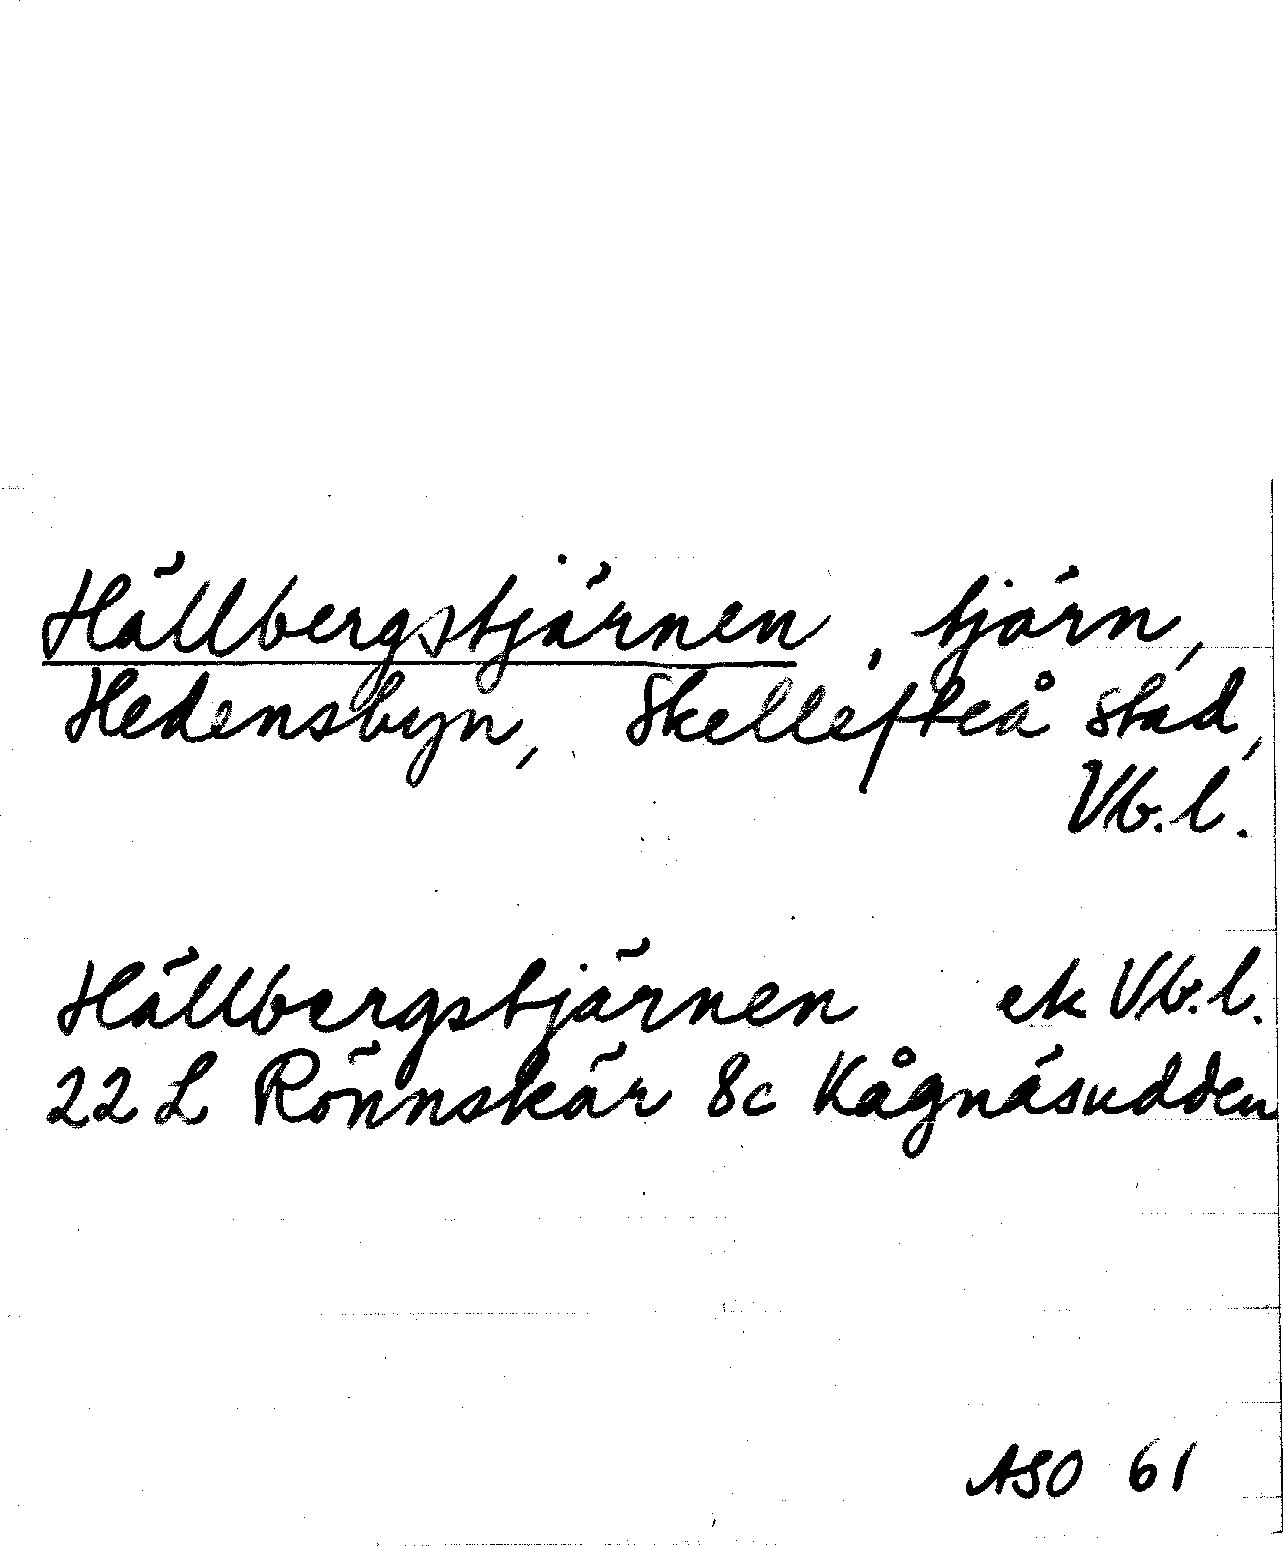 Hällbergstjärnen, tjärn,
Hedensbyn, Skellefteå stad,
Vb.l.
Hällbergstjärnen ek Vb.l.
22 L Rönnskär 8c Kågnäsudden
ASO 61